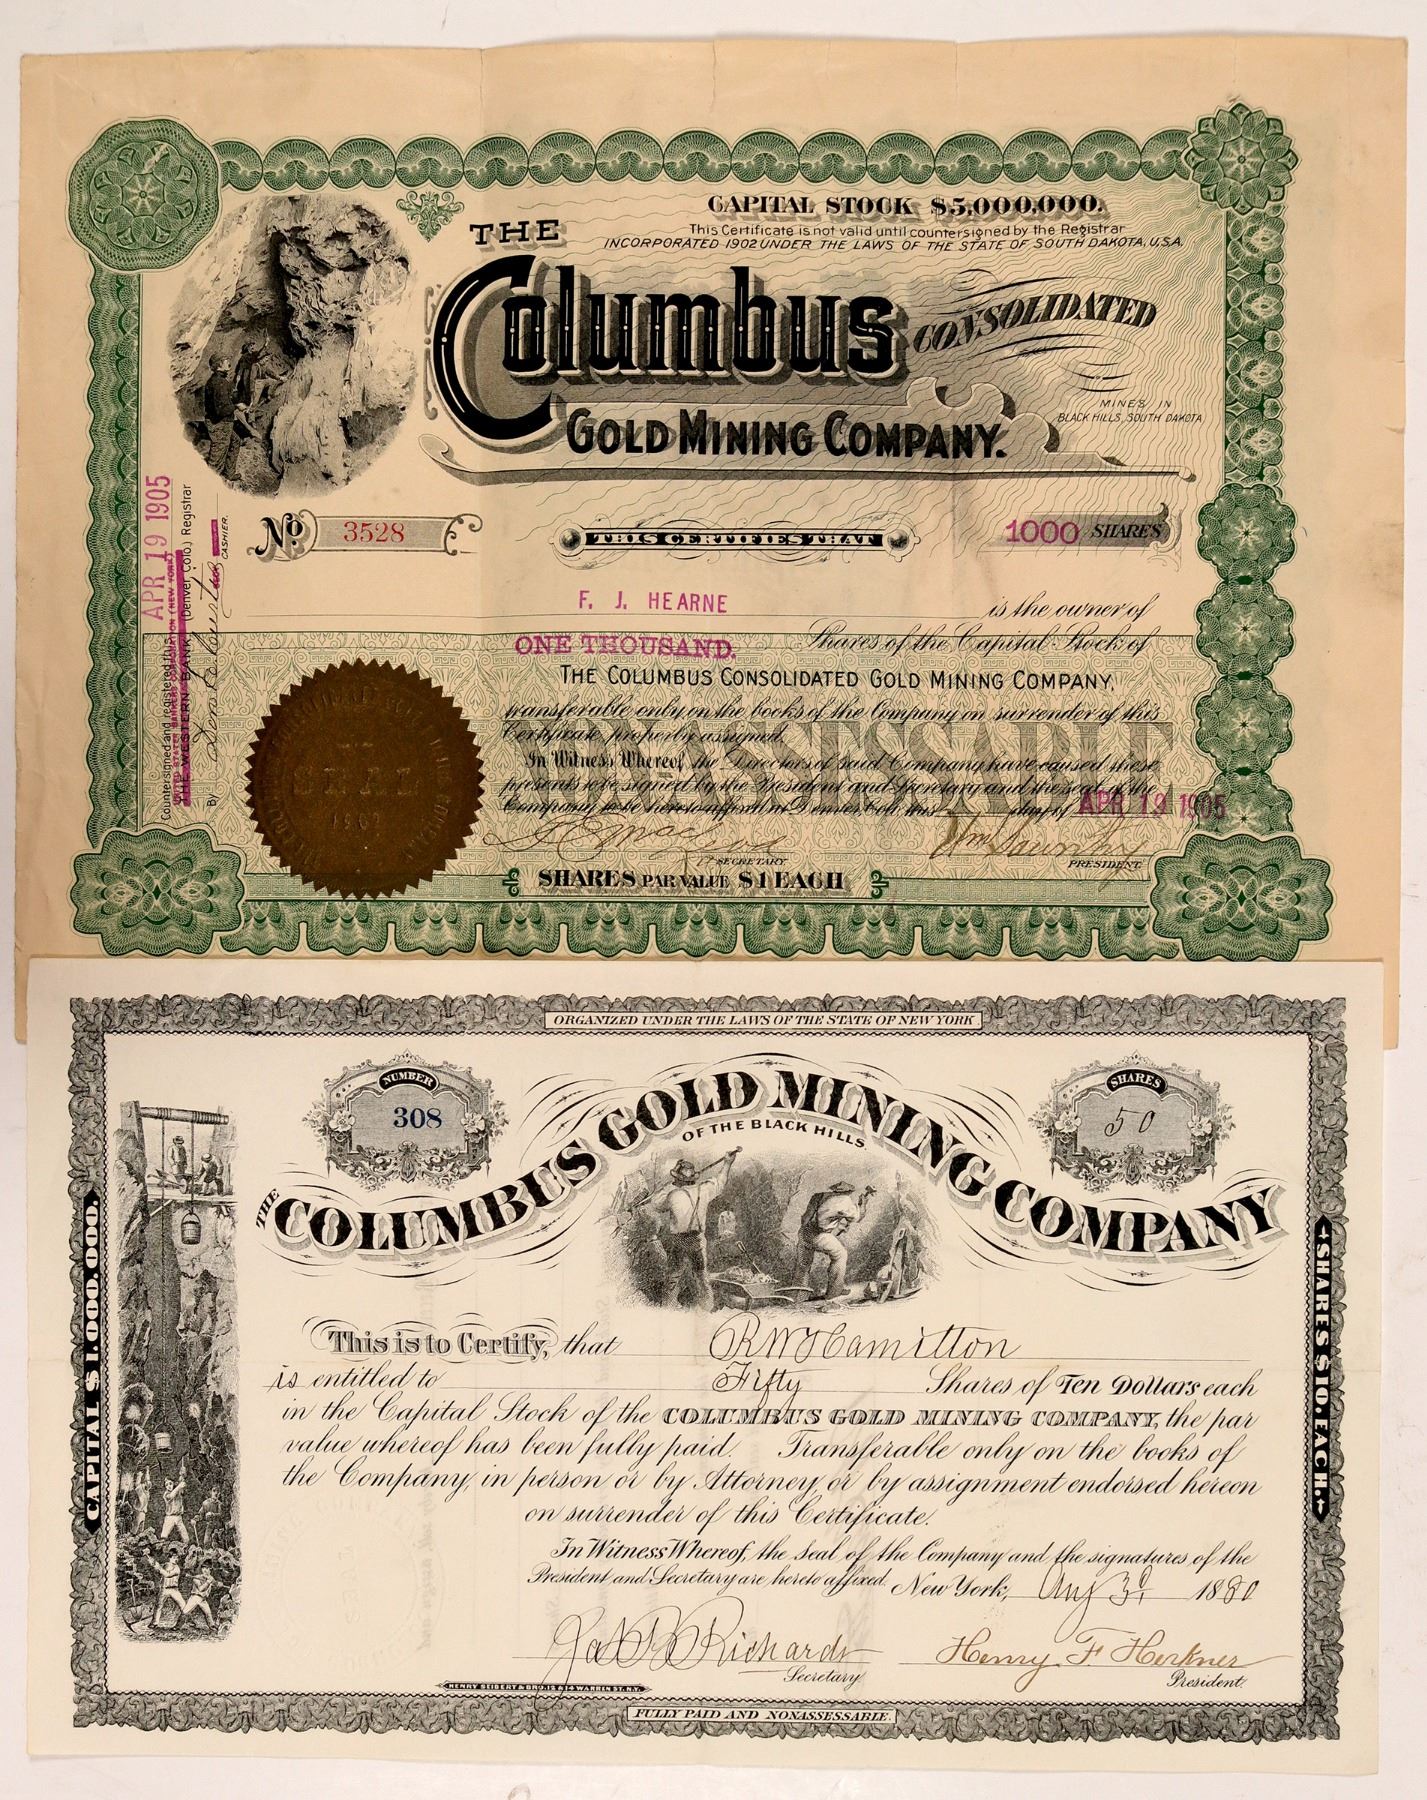 CAPITAL STOCK $5,000,000.
This Certificate is not valid until countersigned by the Registrar
INCORPORATED 1902 UNDER THE LAWS OF THE STATE OF SOUTH DAKOTA, U.S.A.
THE
Columbus CONSOLIDATED
GOLD MINING COMPANY.
MINES IN
BLACK HILLS, SOUTH DAKOTA
No. 3528 THIS CERTIFIES THAT 1000 SHARES
F. J. HEARNE is the owner of
ONE THOUSAND. Shares of the Capital Stock of
THE COLUMBUS CONSOLIDATED GOLD MINING COMPANY,
transferable only on the books of the Company on surrender of this
Certificate properly assigned.
In Witness Whereof, the Directors of said Company have caused these
presents to be signed by the President and Secretary and the seal of the
Company to be hereto affixed in Denver, Colo. this day of APR 19 1905
SECRETARY
PRESIDENT
SHARES PAR VALUE $1 EACH
APR 19 1905
Countersigned and registered
UNITED STATES BANKERS CORPORATION (NEW YORK)
THE WESTERN BANK (Denver Colo.) Registrar
By
CASHIER.
SEAL
ORGANIZED UNDER THE LAWS OF THE STATE OF NEW YORK.
NUMBER
308
SHARES
50
THE COLUMBUS GOLD MINING COMPANY
OF THE BLACK HILLS
CAPITAL $1.000.000.
SHARES $10. EACH.
This is to Certify, that R W Hamilton
is entitled to Fifty Shares of Ten Dollars each
in the Capital Stock of the COLUMBUS GOLD MINING COMPANY, the par
value whereof has been fully paid. Transferable only on the books of
the Company, in person or by Attorney, or by assignment endorsed hereon
on surrender of this Certificate.
In Witness Whereof, the seal of the Company and the signatures of the
President and Secretary are hereto affixed. New York, Aug 3d 1880
Jas B Richards
Secretary
Henry F Herkner
President.
HENRY SEIBERT & BRO. 12 & 14 WARREN ST. N.Y.
FULLY PAID AND NONASSESSABLE.